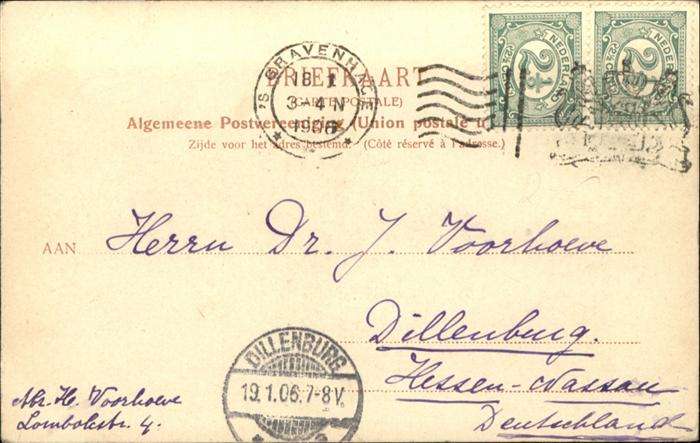 BRIEFKAART
(CARTE POSTALE)
Algemeene Postvereeniging (Union postale u
Zijde voor het adres bestemd. (Côté réservé à l'adresse.)
'S GRAVENHAGE
18 1
3-4 N
1906
NEDERLAND
2½
NEDERLAND
2½
AAN Herrn Dr. J. Voorhoeve
Dillenburg.
Hessen-Nassau
Deutschland
DILLENBURG
19.1.06.7-8V.
Voorhoeve
Lombokstr. 4.